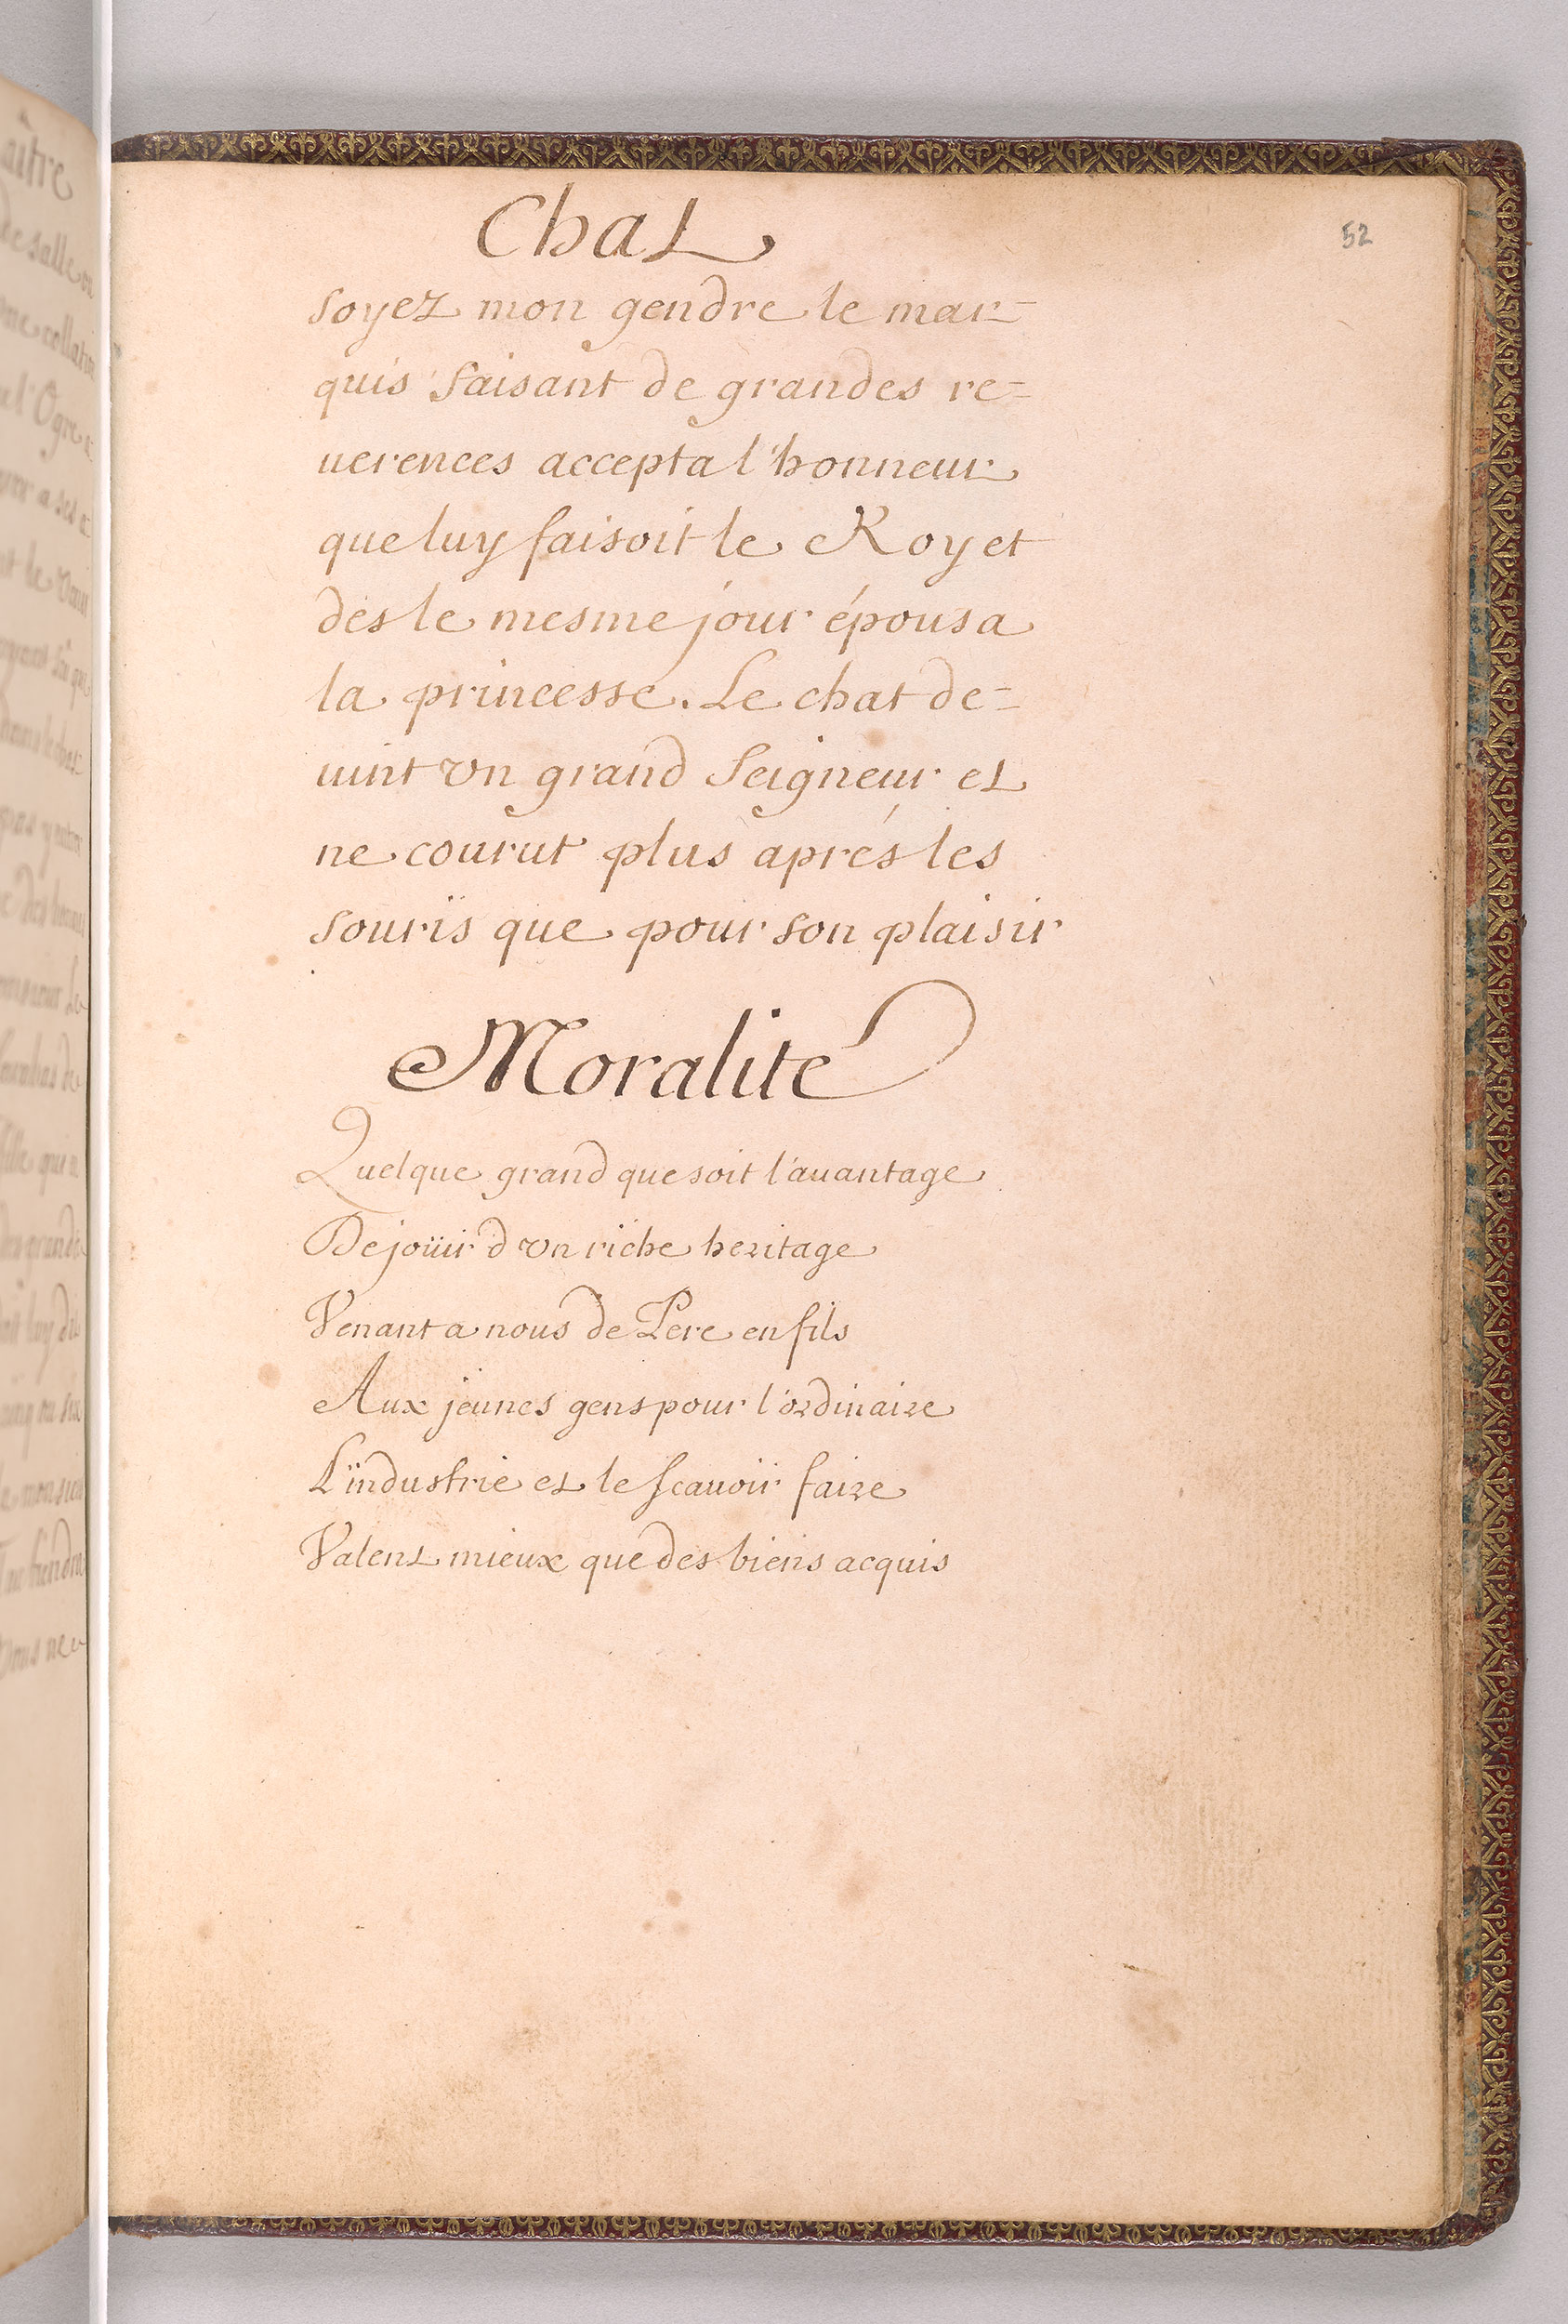 Chat
52
soyez mon gendre le mar-
quis faisant de grandes re=
uerences accepta l'honneur
que luy faisoit le Roy et
dés le mesme jour épousa
la princesse. Le chat de=
uint vn grand Seigneur et
ne courut plus aprés les
souris que pour son plaisir
Moralité
Quelque grand que soit l'auantage
De joüir d'vn riche heritage
Venant a nous de Pere en fils
Aux jeunes gens pour l'ordinaire
L'industrie et le scauoir faire
Valent mieux que des biens acquis